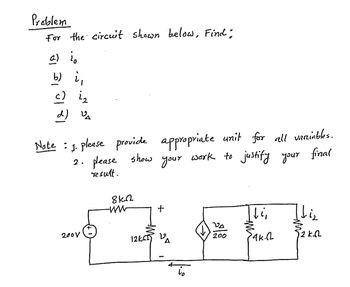 Problem
For the circuit shown below, Find:
a) i₀
b) i₁
c) i₂
d) v_Δ
Note: 1. please provide appropriate unit for all variables.
2. please show your work to justify your final
result.
8kΩ
200V
12kΩ
+
v_Δ
-
v_Δ/200
↓i₁
4kΩ
↓i₂
2kΩ
i₀